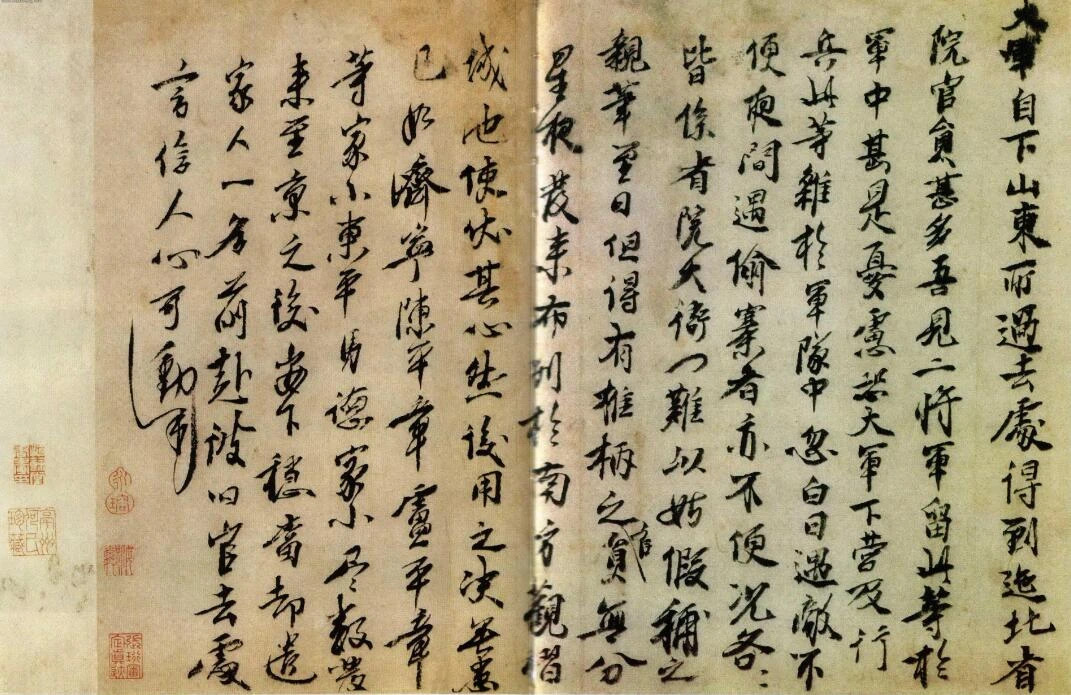 大軍自下山東所過去處得到迤北省
院官員甚多吾見二將軍留此等於
軍中甚是憂慮恐大軍下營及行
兵此等雜於軍隊中忽白日遇敵不
便夜間遇偷寨者亦不便况各〻
皆係省院大衙門難以姑假補之
親筆至日但得有權柄之官員無分
星夜發來布列於南方觀
城池使伏其心然後用之決無患
已如濟寧陳平章盧平章
等家小東平馬德家小尽數發
來至京之後安下穩當却遣
家人一名前赴彼旧官去處
言信人心可動